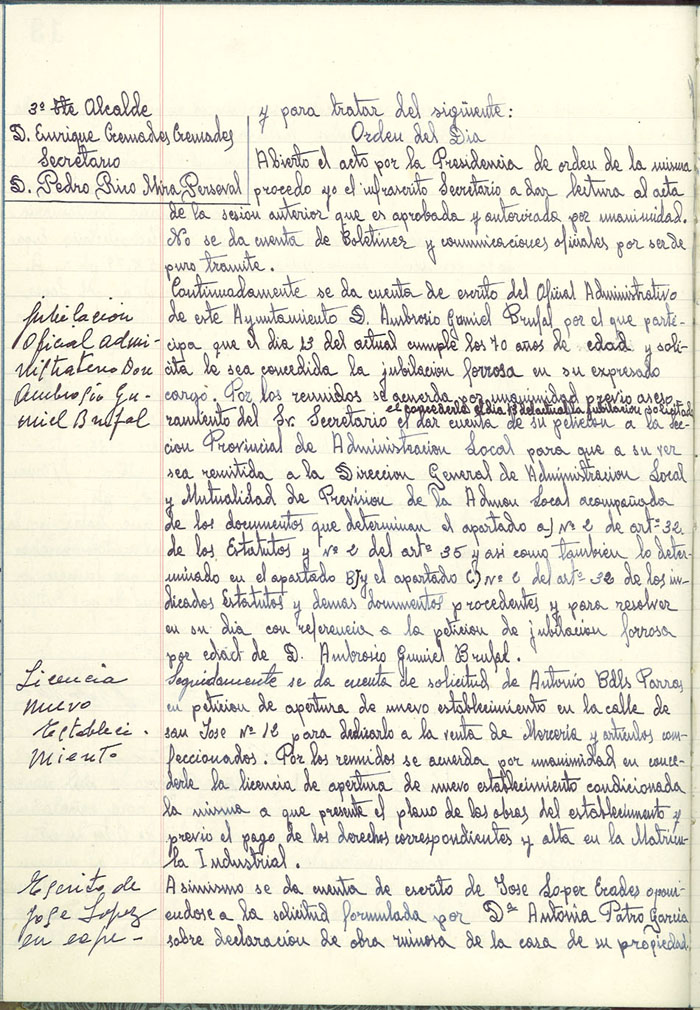 3º tte Alcalde
D. Enrique Cremades Cremades
Secretario
D. Pedro Rico Mira Perseval
y para tratar del sigüente:
Orden del Dia
Abierto el acto por la Presidencia de orden de la misma
procedo yo el infrascrito Secretario a dar lectura al acta
de la sesion anterior que es aprobada y autorizada por unanimidad.
No se da cuenta de Boletines y comunicaciones oficiales por ser de
puro tramite.
Jubilacion
Oficial admi-
nistrativo Don
Ambrosio Gu-
miel Brufal
Continuadamente se da cuenta de escrito del Oficial Administrativo
de este Ayuntamiento D. Ambrosio Gumiel Brufal por el que parti-
cipa que el dia 13 del actual cumple los 70 años de edad y soli-
cita le sea concedida la jubilacion forrosa en su expresado
cargo. Por los reunidos se acuerda por unanimidad previo aseso-
el concederle el dia 13 del actual la jubilacion solicitada
ramiento del Sr. Secretario el dar cuenta de su peticion a la Sec-
cion Provincial de Administracion Local para que a su ver
sea remitida a la Direccion General de Administracion Local
y Mutualidad de Prevision de la Admon Local acompañada
de los documentos que determinan el apartado a) Nº 2 de artº 32
de los Estatutos y Nº 2 del artº 35 y asi como tambien lo deter-
minado en el apartado B) y el apartado C) Nº 2 del artº 32 de los in-
dicados Estatutos y demas documentos procedentes y para resolver
en su dia con referencia a la peticion de jubilacion forrosa
por edad de D. Ambrosio Gumiel Brufal.
Licencia
nuevo
Estableci-
miento
Seguidamente se da cuenta de solicitud de Antonio Bdlls Parras
en peticion de apertura de nuevo establecimiento en la calle de
san Jose Nº 12 para dedicarlo a la venta de Merceria y articulos con-
feccionados. Por los reunidos se acuerda por unanimidad en conce-
derle la licencia de apertura de nuevo establecimiento condicionada
la misma a que presente el plano de las obras del establecimento y
previo el pago de los derechos correspondientes y alta en la Matricu-
la Industrial.
Escrito de
Jose Lopez
en expe-
Asimismo se da cuenta de escrito de Jose Lopez Erades oponi-
endose a la solicitud formulada por Dª Antonia Patro Garcia
sobre declaración de obra ruinosa de la casa de su propiedad